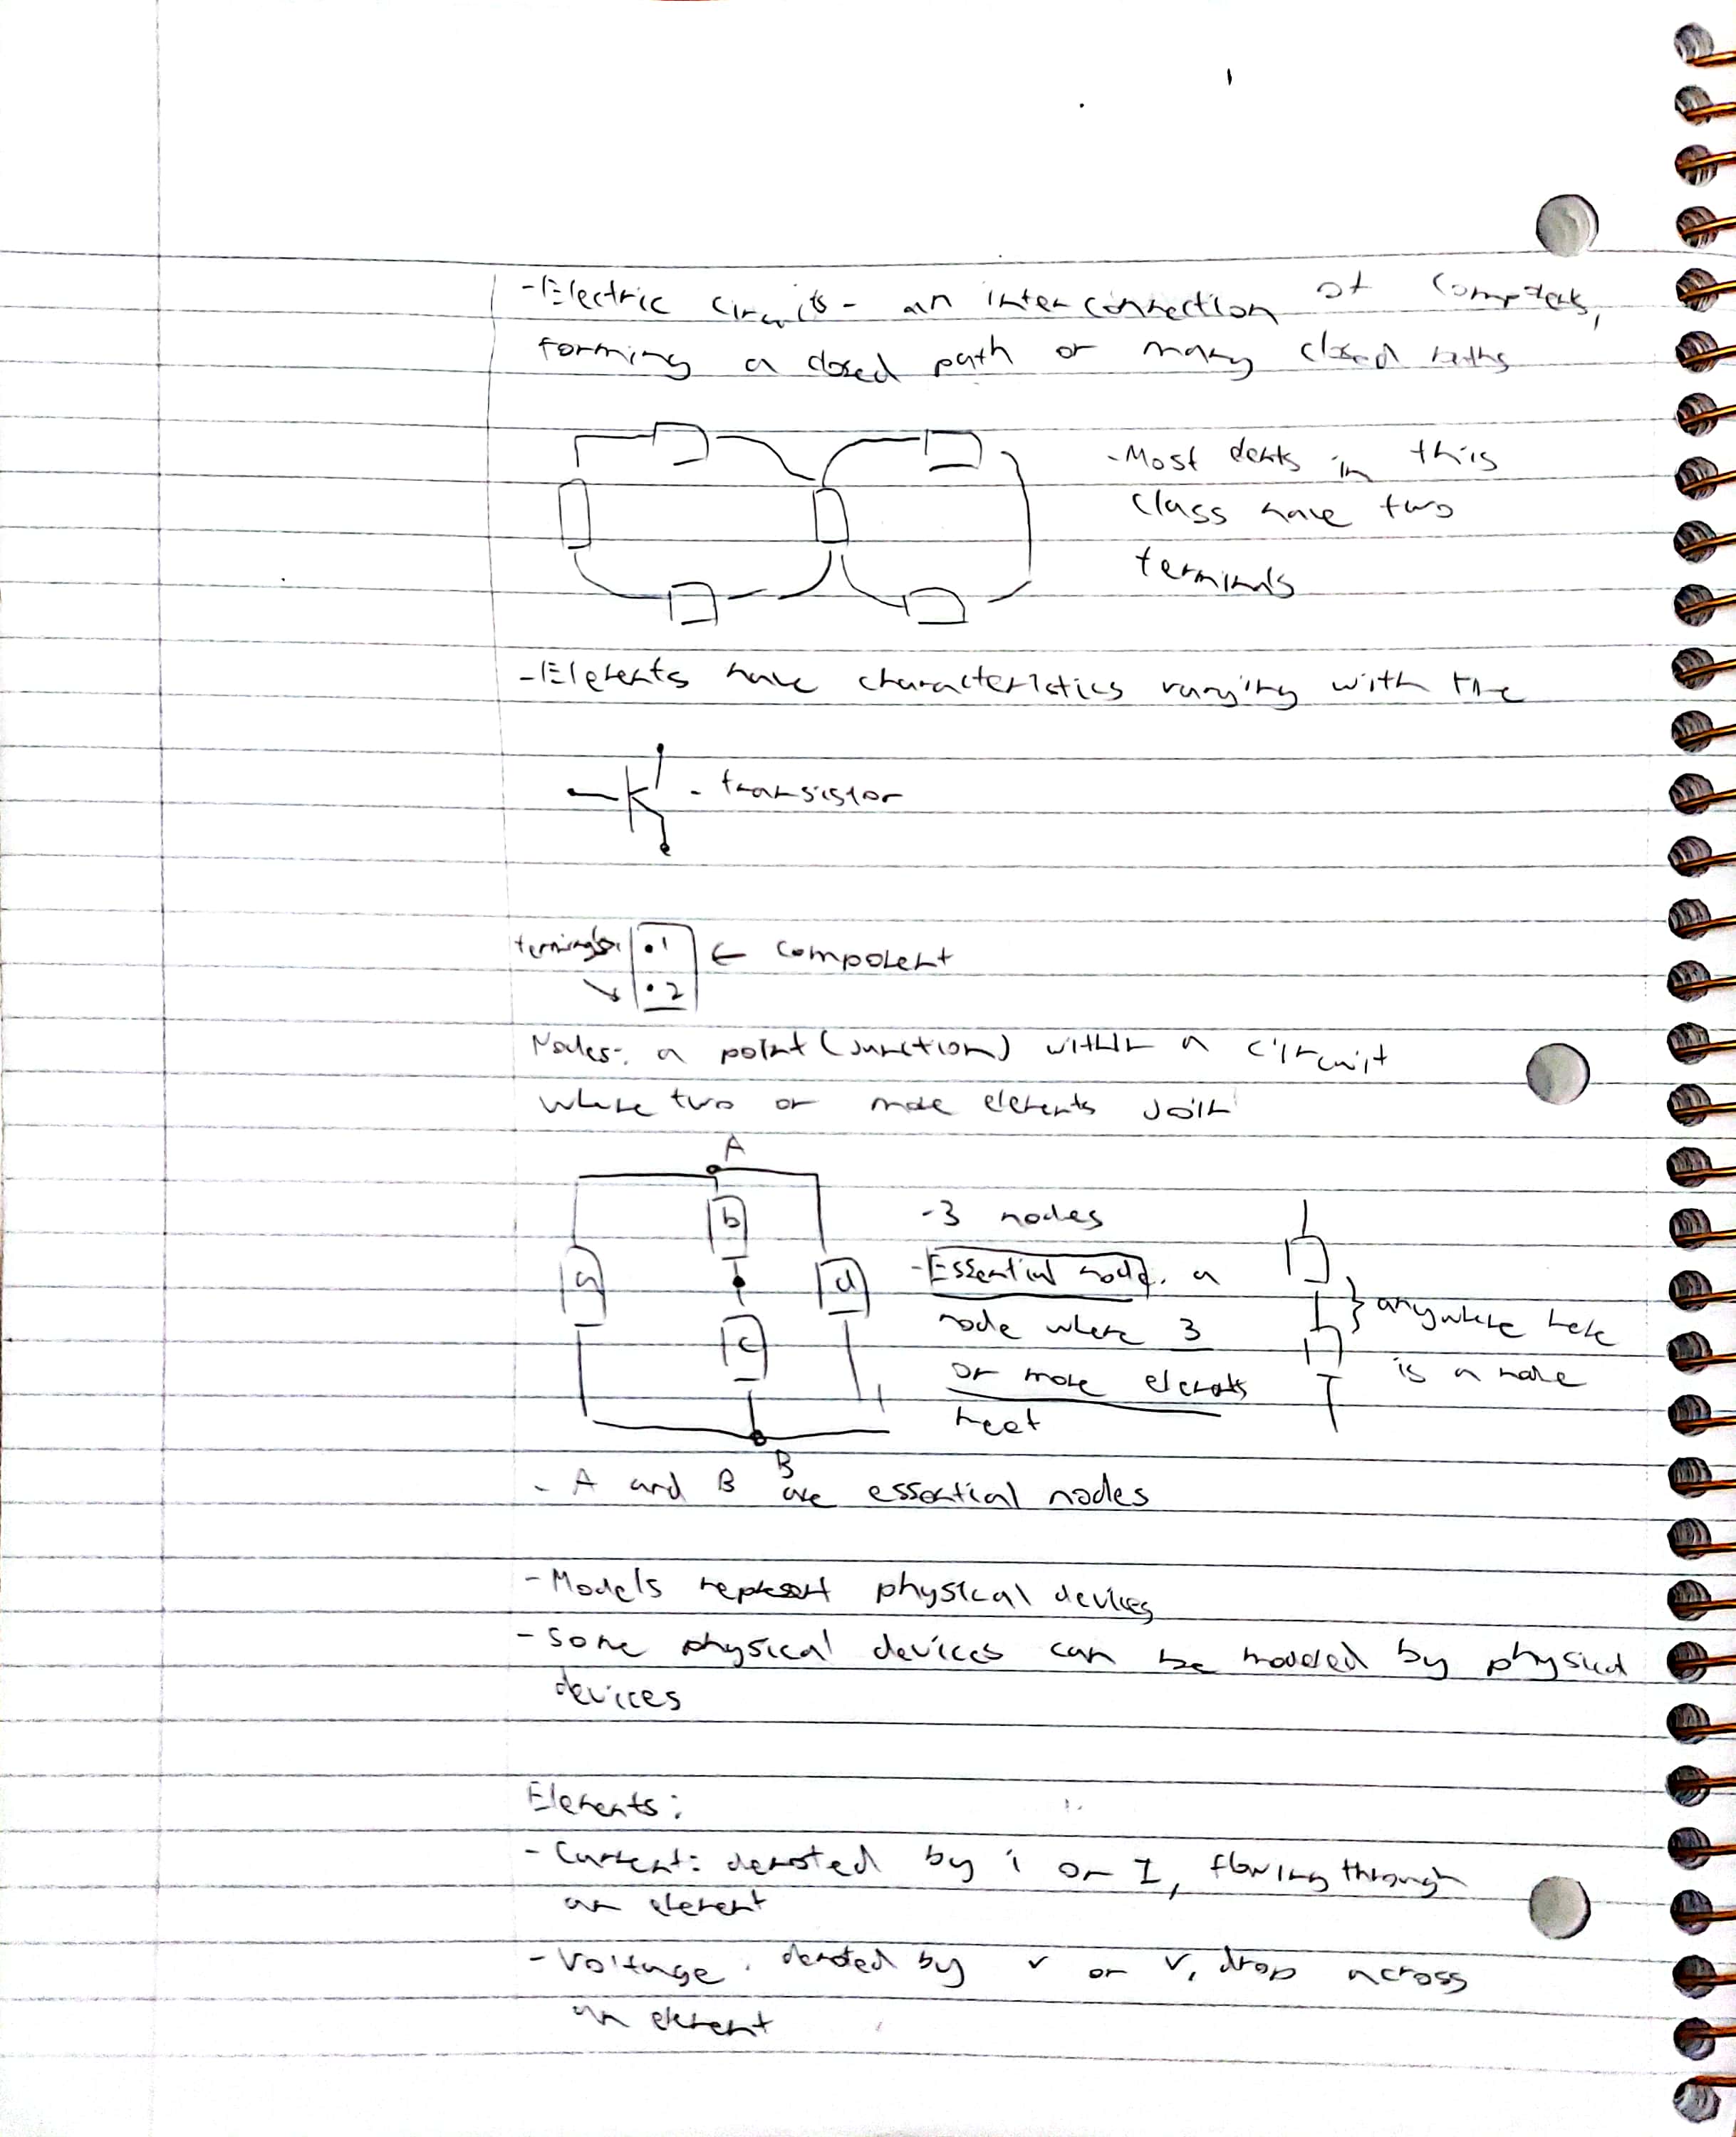 - Electric circuits - an interconnection of components,
forming a closed path or many closed paths
- Most elements in this
class have two
terminals
- Elements have characteristics varying with time
- transistor
terminals .1 ← component
.2
Nodes: a point (junction) within a circuit
where two or more elements join
A
b
a
d
c
B
- 3 nodes
- Essential node, a
node where 3
or more elements
meet
} anywhere here
is a node
- A and B are essential nodes
- Models represent physical devices
- some physical devices can be modeled by physical
devices
Elements:
- Current: denoted by i or I, flowing through
an element
- Voltage: denoted by v or V, drop across
an element